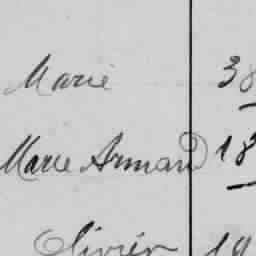 Marie 38
Marie Armand 18
Olivier 19